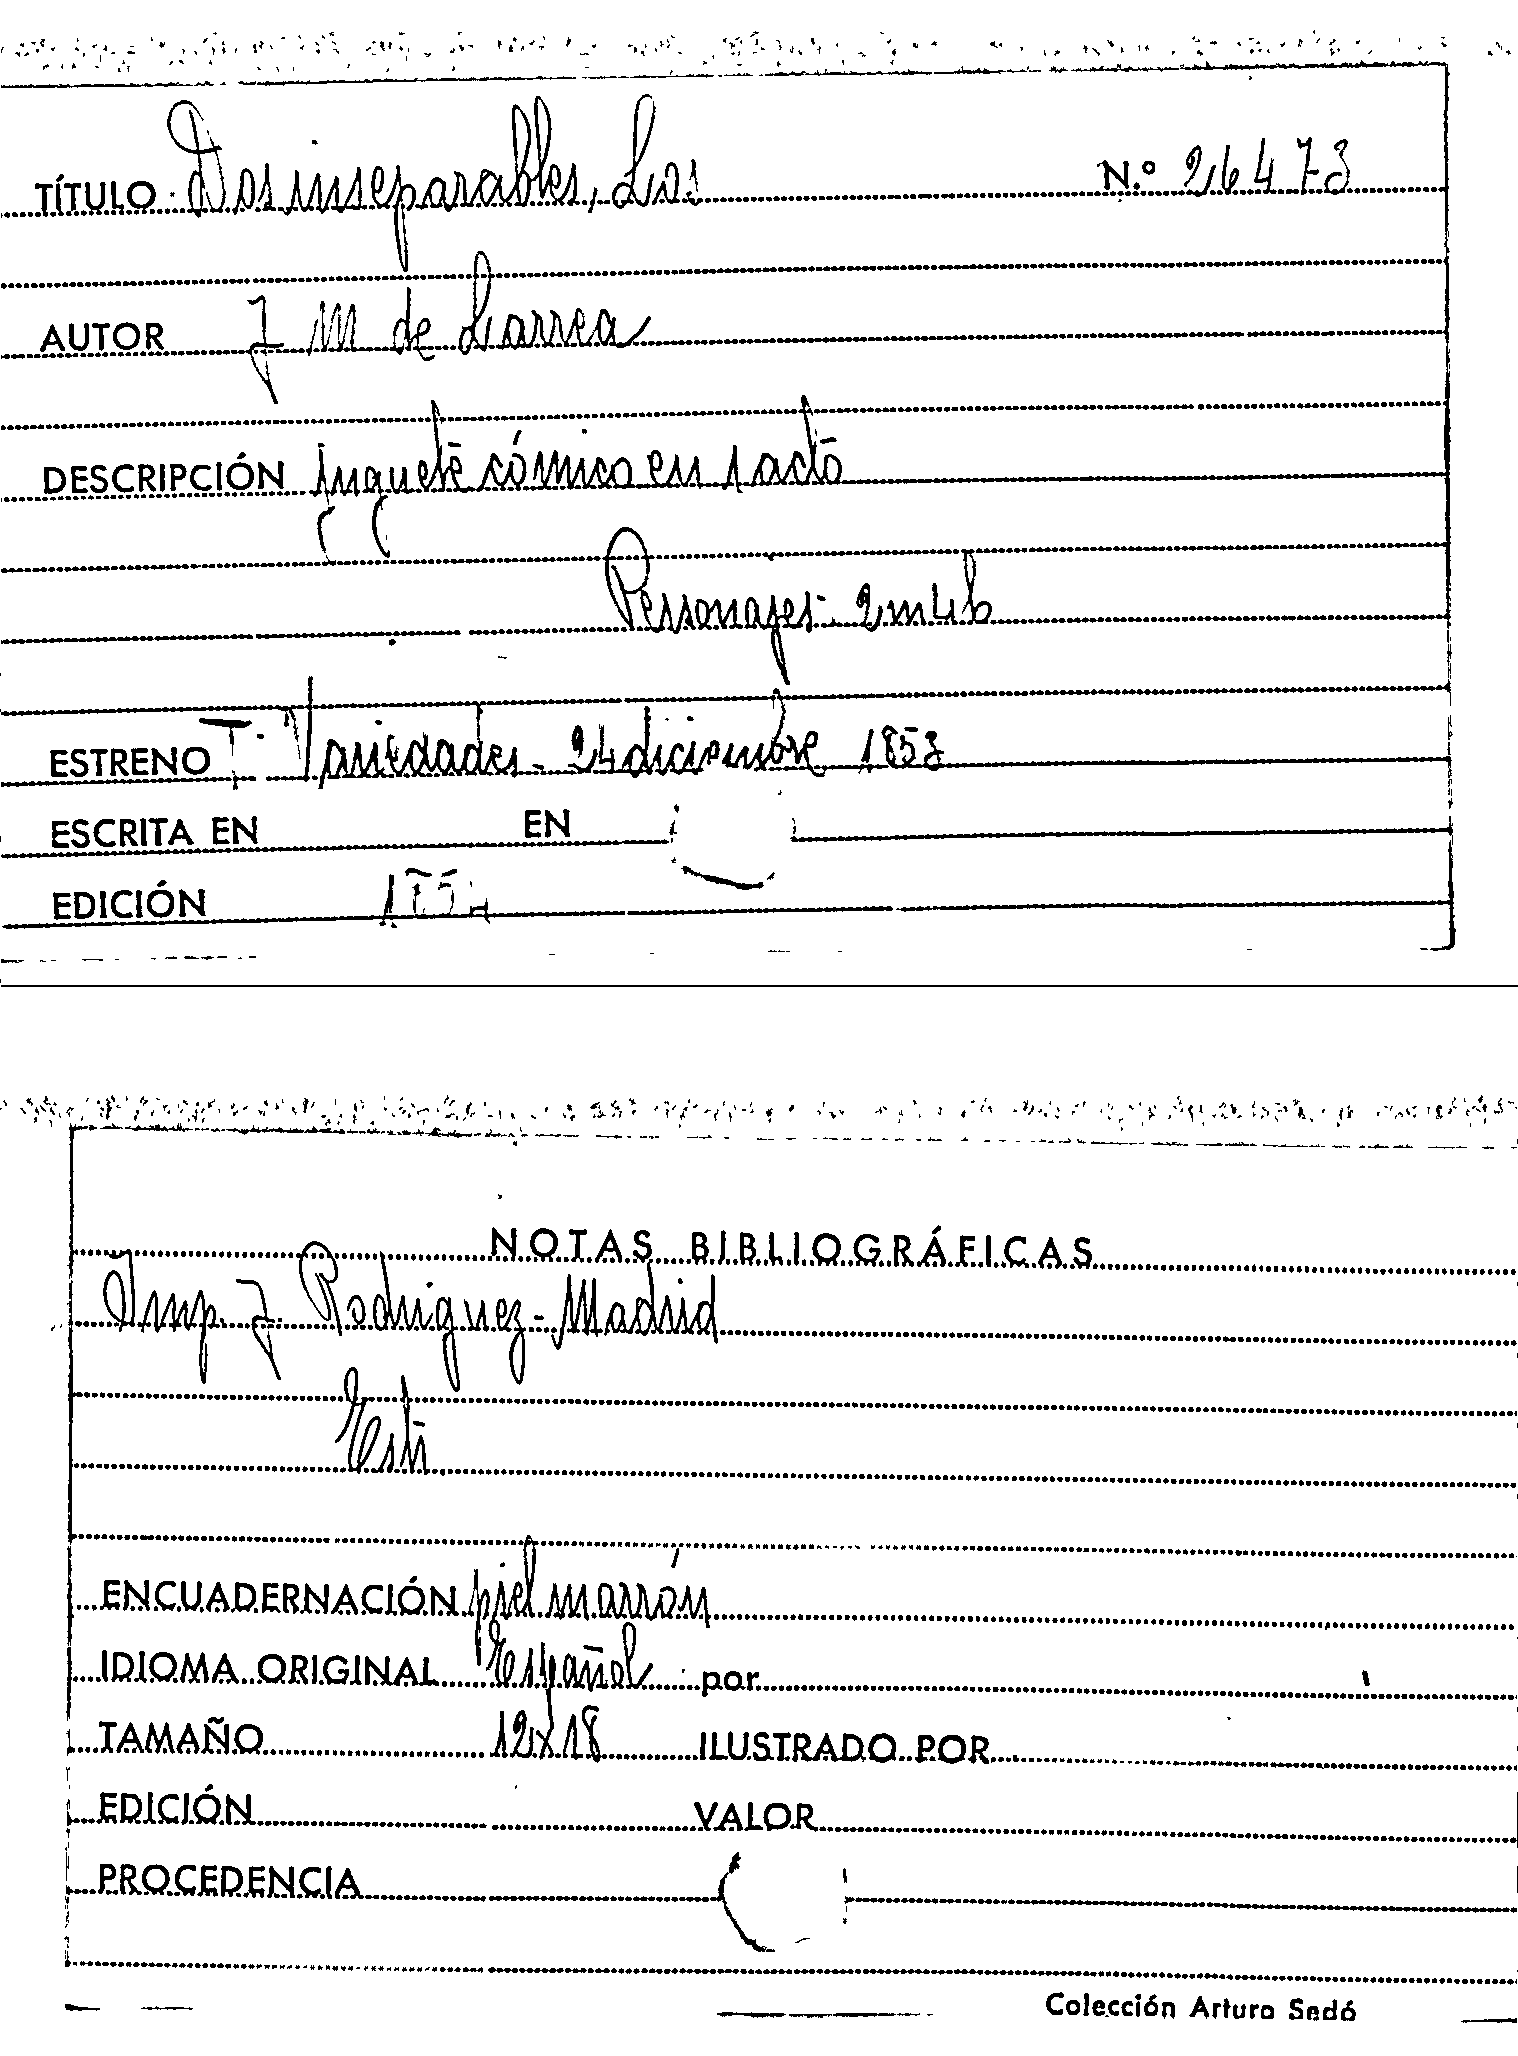 TÍTULO Dos inseparables, Los N.º 26473
AUTOR J M de Larrea
DESCRIPCIÓN juguete cómico en 1 acto
Personajes: 2m4h
ESTRENO T. Variedades - 24 diciembre 1853
ESCRITA EN EN
EDICIÓN 1854
NOTAS BIBLIOGRÁFICAS
Imp. J. Rodriguez - Madrid
ENCUADERNACIÓN piel marrón
IDIOMA ORIGINAL Español por
TAMAÑO 12x18 ILUSTRADO POR
EDICIÓN VALOR
PROCEDENCIA
Colección Arturo Sedó